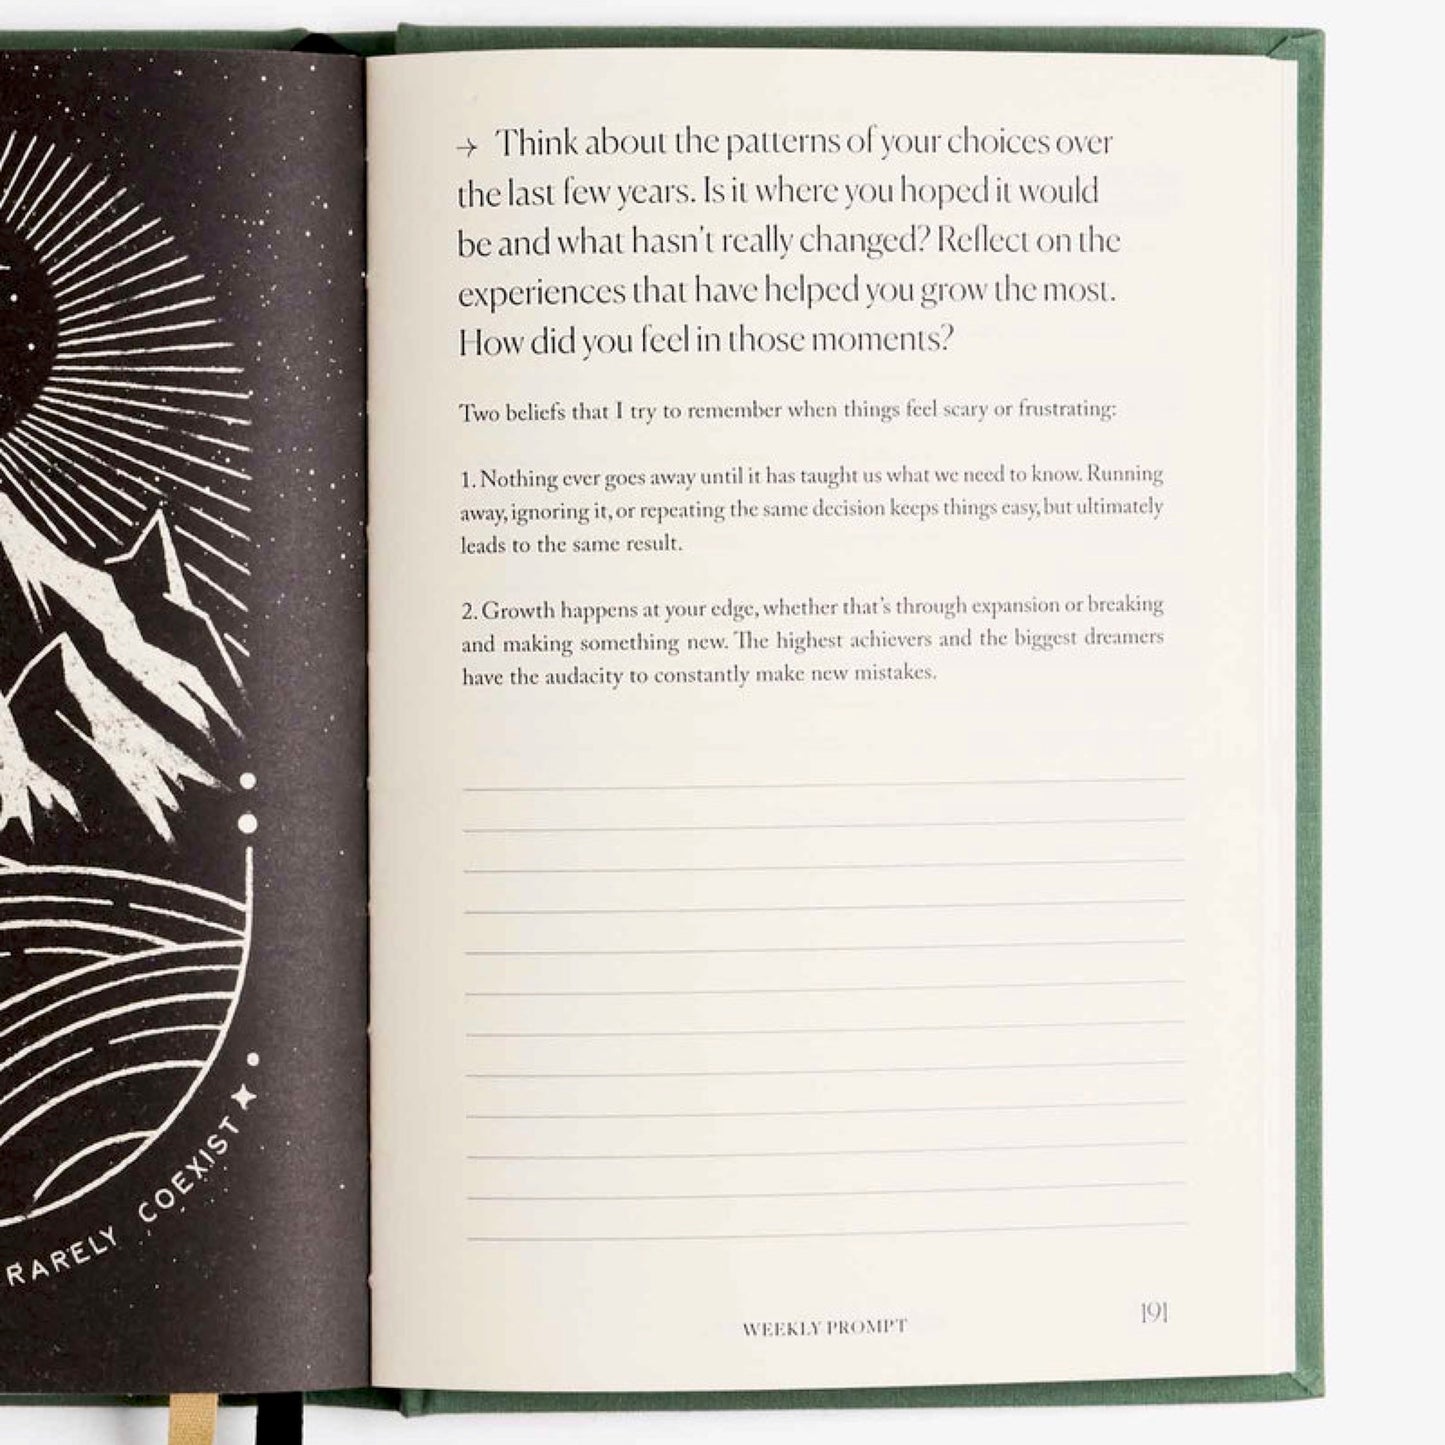 RARELY COEXIST
→ Think about the patterns of your choices over
the last few years. Is it where you hoped it would
be and what hasn't really changed? Reflect on the
experiences that have helped you grow the most.
How did you feel in those moments?
Two beliefs that I try to remember when things feel scary or frustrating:
1. Nothing ever goes away until it has taught us what we need to know. Running
away, ignoring it, or repeating the same decision keeps things easy, but ultimately
leads to the same result.
2. Growth happens at your edge, whether that's through expansion or breaking
and making something new. The highest achievers and the biggest dreamers
have the audacity to constantly make new mistakes.
WEEKLY PROMPT
191